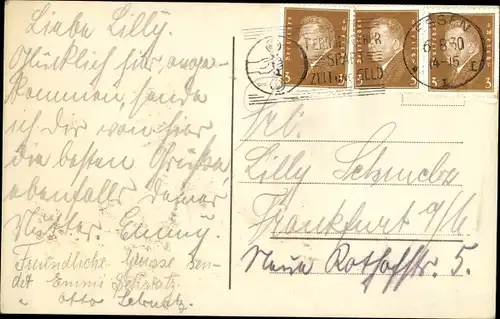 Liebe Lilly.
Glücklich hier ange-
kommen, sende
ich dir von hier
die besten Grüsse,
ebenfalls deiner
Mutter. Emmy.
Freundliche Grüsse sen-
det Emmi
u. Otto
DEUTSCHES REICH
3 3
DEUTSCHES REICH
3 3
3
FERNSPRECHER
SPART
ZEIT UND GELD
ESSEN
6.8.30
14-15
Frl.
Lilly
Frankfurt a/M.
Neue Rothofstr. 5.